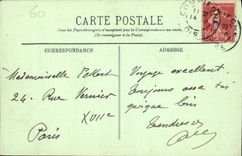 60
CARTE POSTALE
Tous les pays étrangers n'acceptent pas la Correspondance au recto.
(Se renseigner à la Poste).
CORRESPONDANCE
ADRESSE
Mademoiselle
24 Rue Vernier
XVIIe
Paris
Voyage excellent.
Toujours avec toi
quoique loin
Tendresses